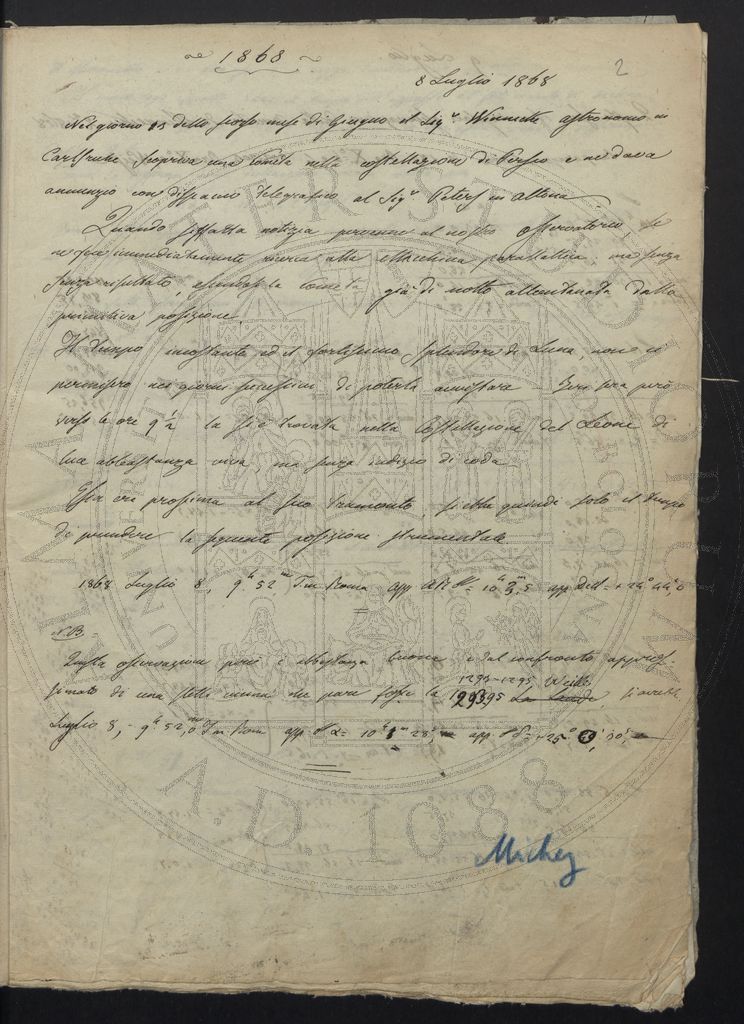 1868
2
8 Luglio 1868
Nel giorno 13 dello scorso mese di Giugno il Sigr Winnecke astronomo in
Carlsruhe scopriva una Cometa nella costellazione di Perseo e ne dava
annunzio con dispaccio telegrafico al Sigr Peters in Altona
Quando siffatta notizia pervenne al nostro osservatorio, se
ne fece immediatamente ricerca alla Macchina parallattica, ma senza
senza risultato, essendosi la cometa già di molto allontanata dalla
primitiva posizione.
Il tempo incostante ed il fortissimo splendore di Luna, non ci
permisero nei giorni successivi di poterla avvistare Ieri sera però
verso le ore 9 1/2 la si è trovata nella Costellazione del Leone di
luce abbastanza viva, ma senza indizio di coda
Essa era prossima al suo tramonto, si ebbe quindi solo il tempo
di prendere la seguente posizione strumentale
1868 Luglio 8, 9h 52m T m Roma app AR = 10h 3m,5 app decl = + 24° 44',0
N.B.
Questa osservazione però è abbastanza buona e dal confronto appros-
simato di una stella vicina che pare fosse la 129395 La Lande, si avrebbe
1293-1295 Weiss
Luglio 8, - 9h 52m,0 T m Roma app α = 10h 3m 28s, app δ = +25°
Michez
ALMA MATER STUDIORUM
A.D. 1088